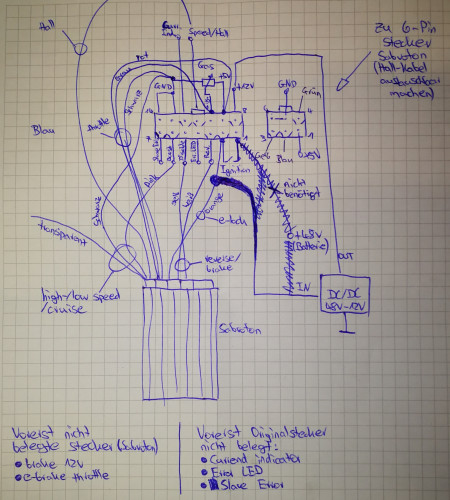 Hall
Speed/Hall
zu 6-Pin
Stecker
Sabvoton
(Hall-Kabel
austauschbar
machen)
Rot
Gas
+5V
GND
+12V
GND
Grün
Schwarz
Throttle
Blau
Ignition
Gelb
Blau
+5V
nicht
benötigt
Pink
orange
e-lock
+48V
(Batterie)
OUT
transparent
reverse/
brake
IN
DC/DC
48V-12V
high-/low speed
/cruise
Sabvoton
Vorerst nicht
belegte Stecker (Sabvoton)
• brake 12V
• e-brake throttle
Vorerst Originalstecker
nicht belegt:
• Current indicator
• Error LED
• Slave Error